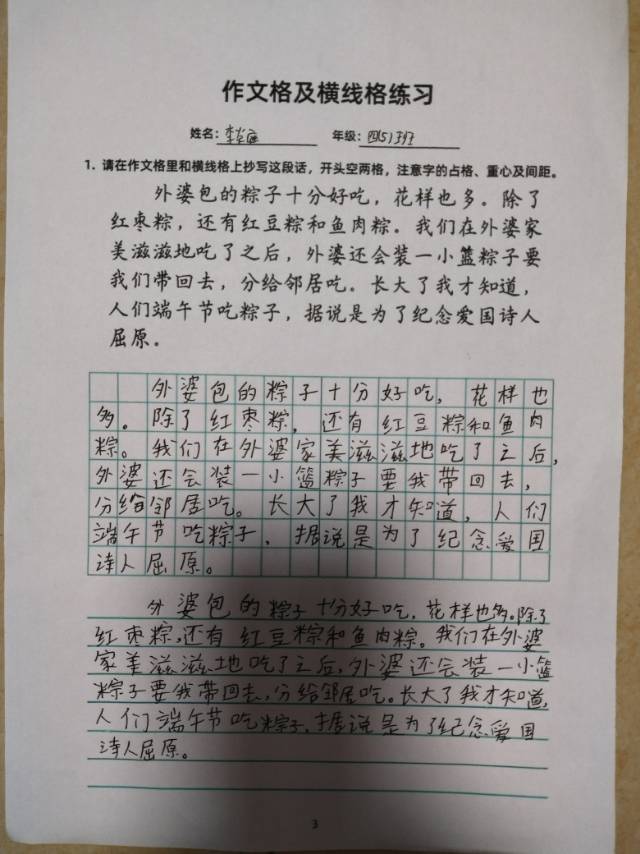 作文格及横线格练习
姓名: 李 年级: 四(5)班
1. 请在作文格里和横线格上抄写这段话，开头空两格，注意字的占格、重心及间距。
外婆包的粽子十分好吃，花样也多。除了
红枣粽，还有红豆粽和鱼肉粽。我们在外婆家
美滋滋地吃了之后，外婆还会装一小篮粽子要
我们带回去，分给邻居吃。长大了我才知道，
人们端午节吃粽子，据说是为了纪念爱国诗人
屈原。
外婆包的粽子十分好吃，花样也
多。除了红枣粽，还有红豆粽和鱼肉
粽。我们在外婆家美滋滋地吃了之后，
外婆还会装一小篮粽子要我带回去，
分给邻居吃。长大了我才知道，人们
端午节吃粽子，据说是为了纪念爱国
诗人屈原。
外婆包的粽子十分好吃，花样也多。除了
红枣粽，还有红豆粽和鱼肉粽。我们在外婆
家美滋滋地吃了之后，外婆还会装一小篮
粽子要我带回去，分给邻居吃。长大了我才知道，
人们端午节吃粽子，据说是为了纪念爱国
诗人屈原。
3